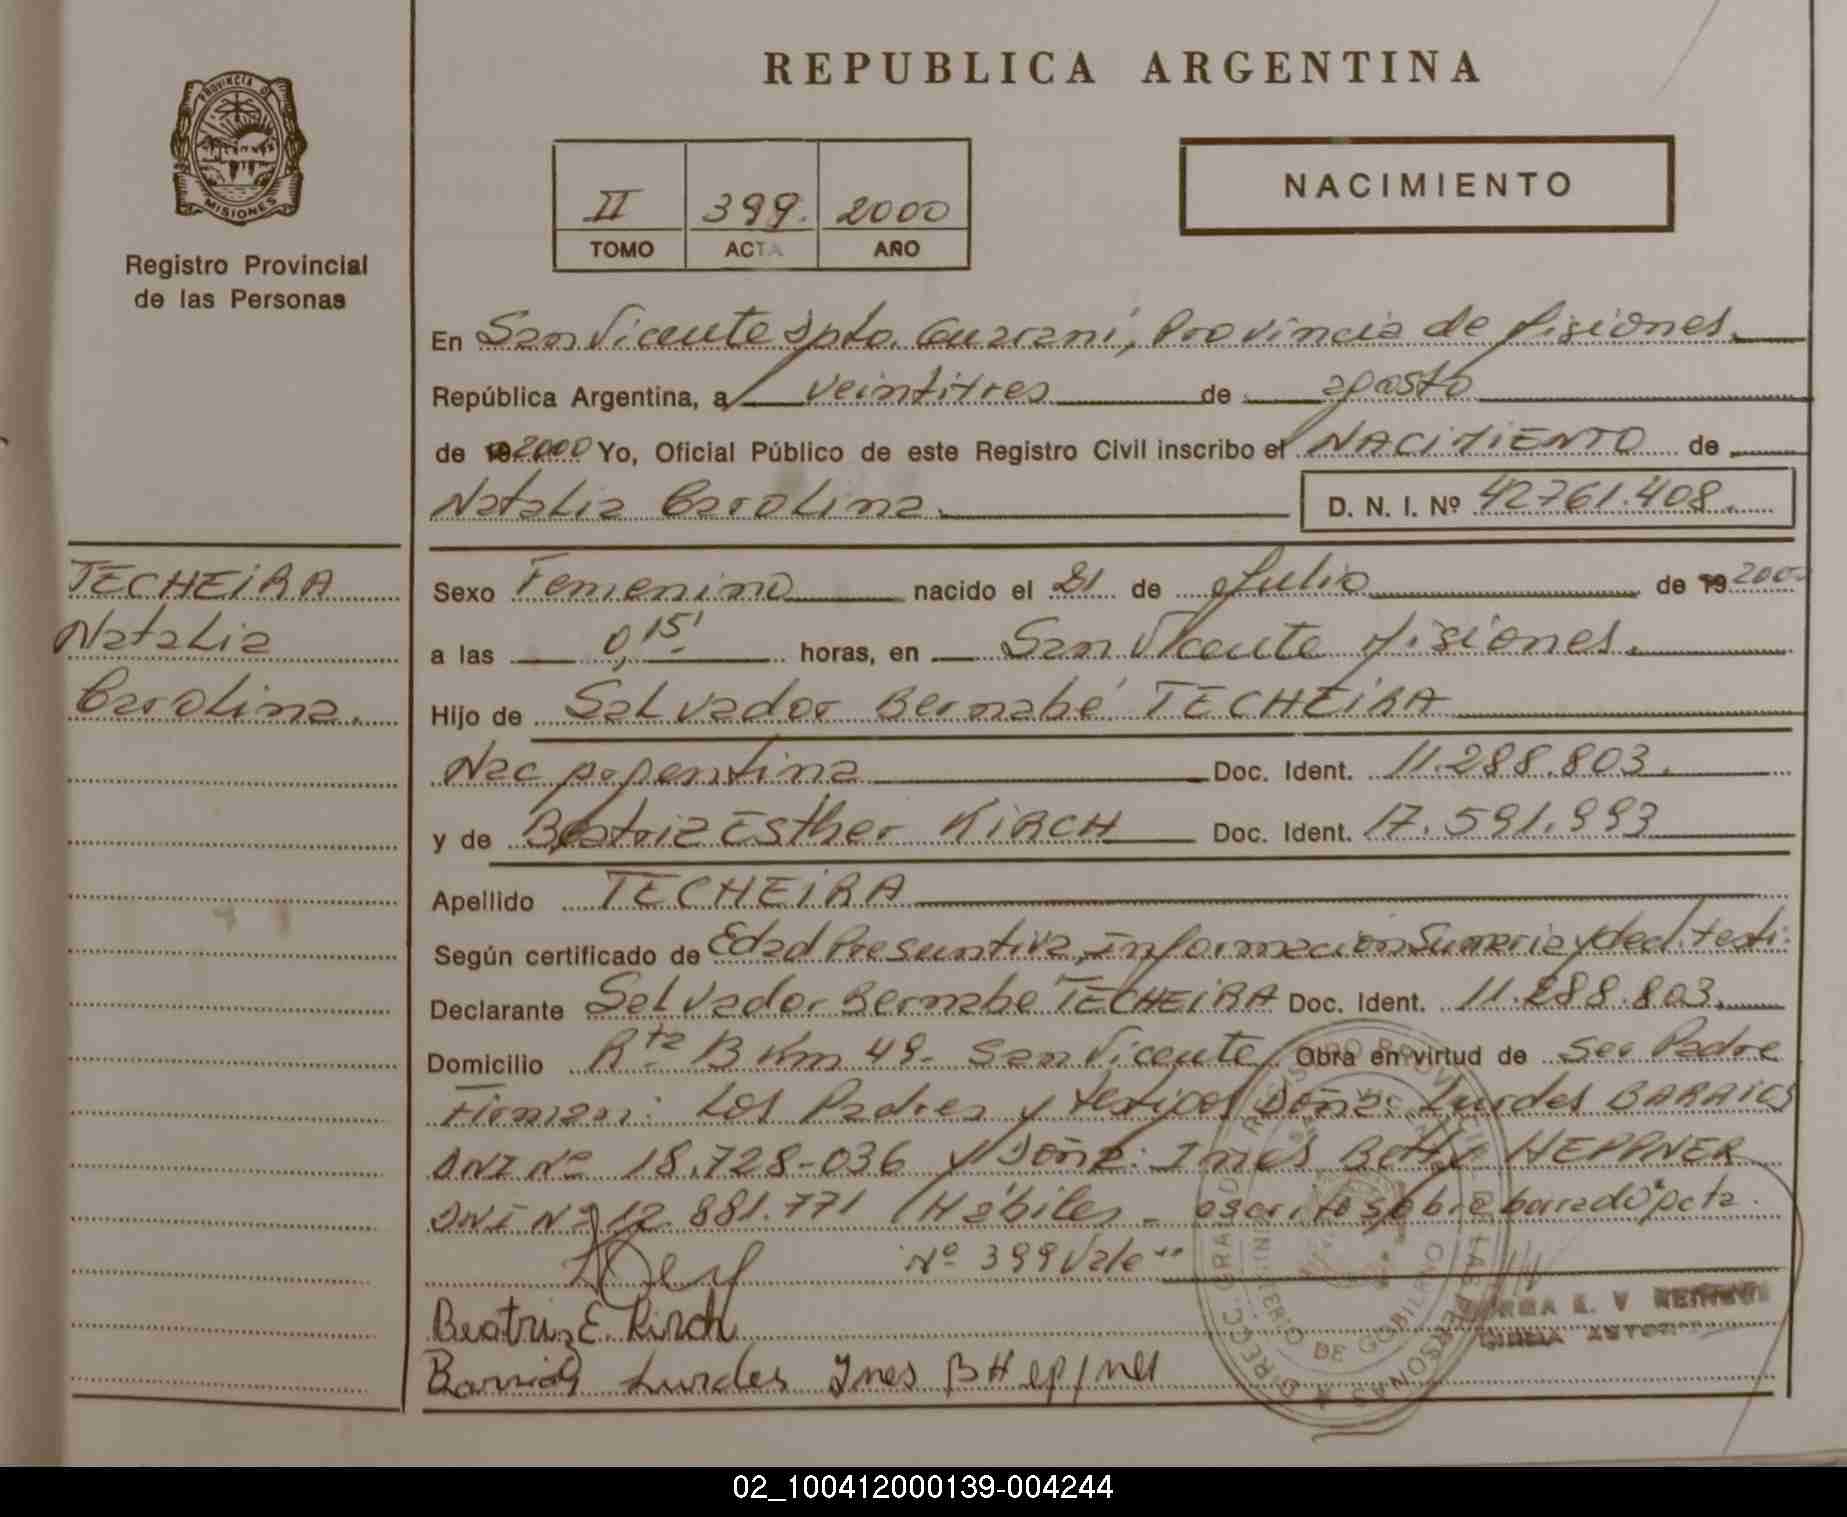 REPUBLICA ARGENTINA
PROVINCIA D
MISIONES
Registro Provincial
de las Personas
NACIMIENTO
II 399. 2000
TOMO ACTA AÑO
En San Vicente Dpto. Guaraní, Provincia de Misiones.
República Argentina, a veintitres de agosto
de 19 2000 Yo, Oficial Público de este Registro Civil inscribo el NACIMIENTO de
Natalia Carolina. D. N. I. Nº 42761.408.
TECHEiRA
Natalia
Carolina.
Sexo Femenino nacido el 21 de Julio de 19 2000
a las 0,15' horas, en San Vicente Misiones.
Hijo de Salvador Bernabé TECHEiRA
Nac Argentina Doc. Ident. 11.288.803.
y de Beatriz Esther KiRCH Doc. Ident. 17.591.993
Apellido TECHEiRA
Según certificado de Edad Presuntiva, Información Sumaria y decl. testi.
Declarante Salvador Bernabe TECHEiRA Doc. Ident. 11.288.803.
Domicilio Rta 13 Km 49- San Vicente Obra en virtud de ser Padre
Firman: Los Padres y testigos Doña: Lurdes BARRIOS
DNI Nº 18.728-036 y Doña: Inés Betty HEPPNER
DNI Nº 12.881.771 Hábiles - escrito sobre borrado "acta
Nº 399 Vale"
Beatriz E. Kirch
Barrios Lurdes Ines B Heppner
02_100412000139-004244